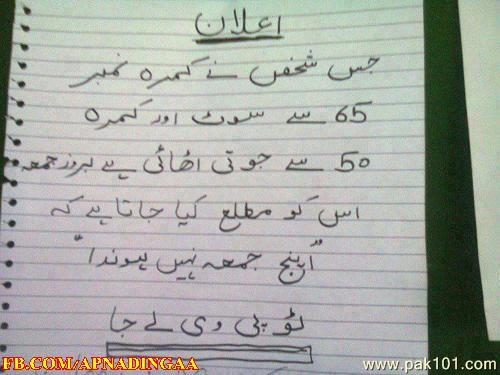 اعلان
جس شخص نے کمرہ نمبر
65 سے سوٹ اور کمرہ
50 سے جوتی اٹھائی ہے بروز جمعہ
اس کو مطلع کیا جاتا ہے کہ
"اینج جمعہ نہیں ہوندا"
ٹوپی وی لے جا
FB.COM/APNADINGAA
www.pak101.com